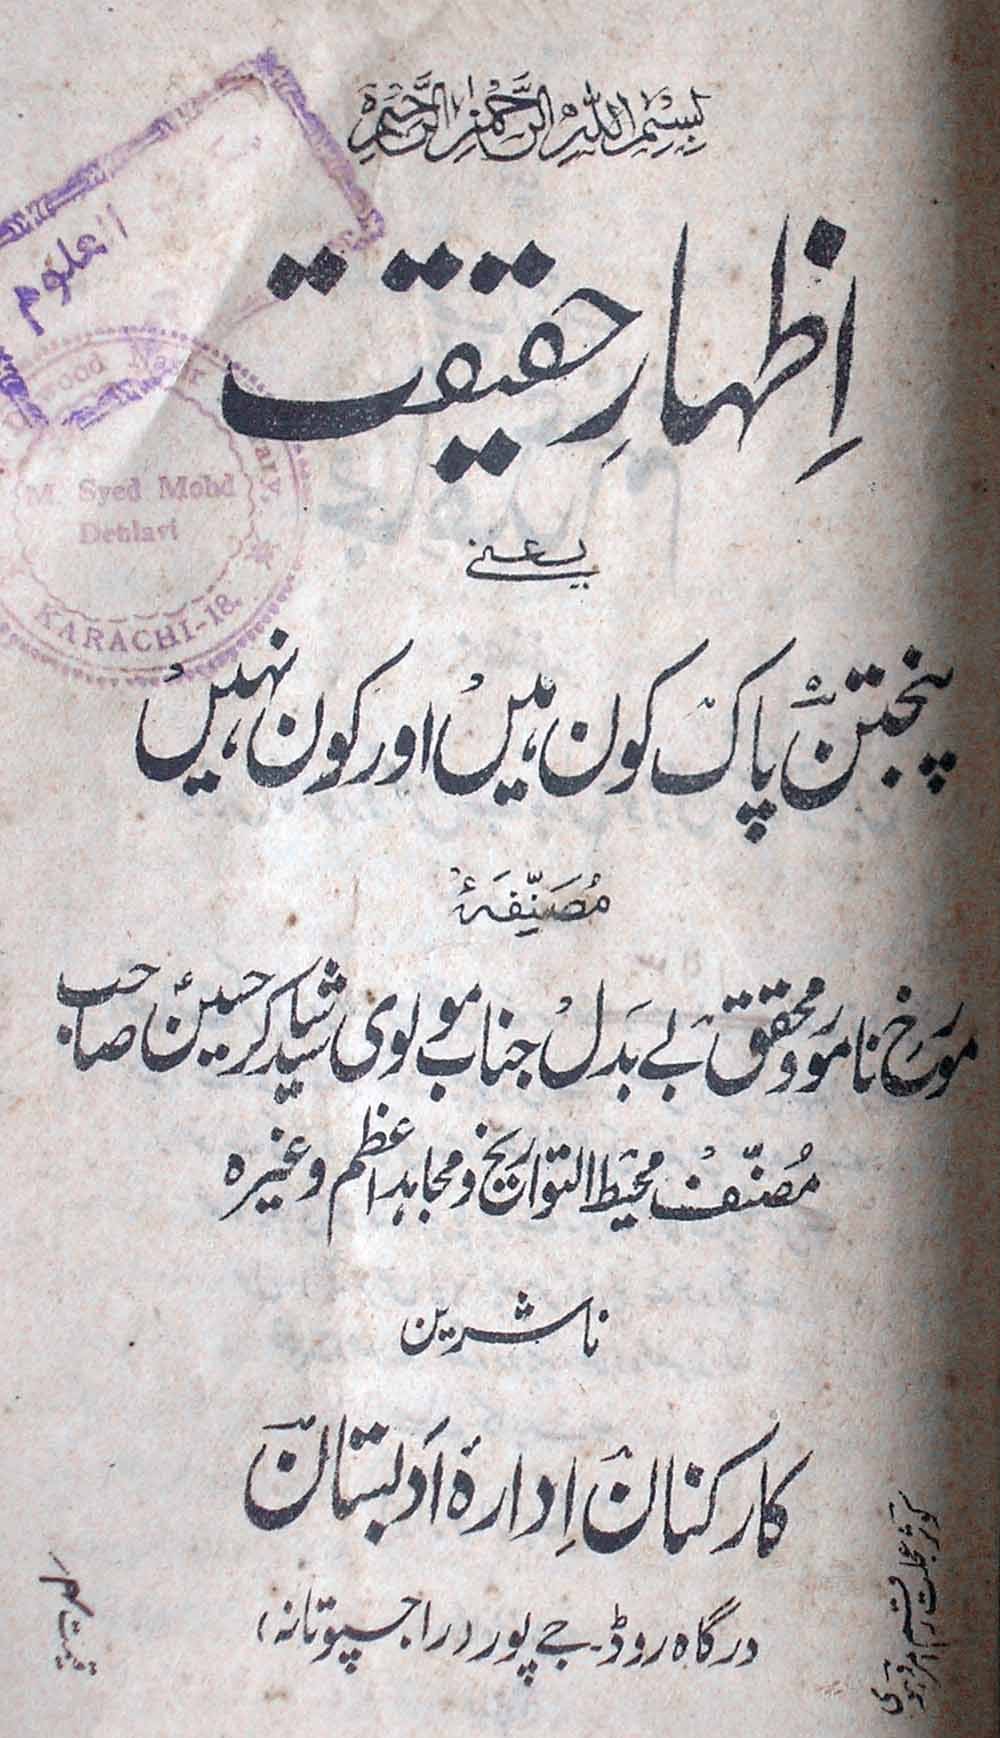 بسم اللہ الرحمٰن الرحیم
العلوم
اِظہارِ حقیقت
M. Syed Mohd
Dehlavi
KARACHI-18.
یعنی
پنجتن پاک کون ہیں اور کون نہیں
مُصَنِّفَہٗ
مورخ نامور و محقق بے بدل جناب مولوی سید شاکر حسین صاحب
مُصنّف محیط التواریخ و مجاہد اعظم وغیرہ
ناشرین
کارکنان اِدارۂ اَدبستان
درگاہ روڈ۔ جے پور (راجپوتانہ)
کوثر عجلت رقم امروہوی
قیمت